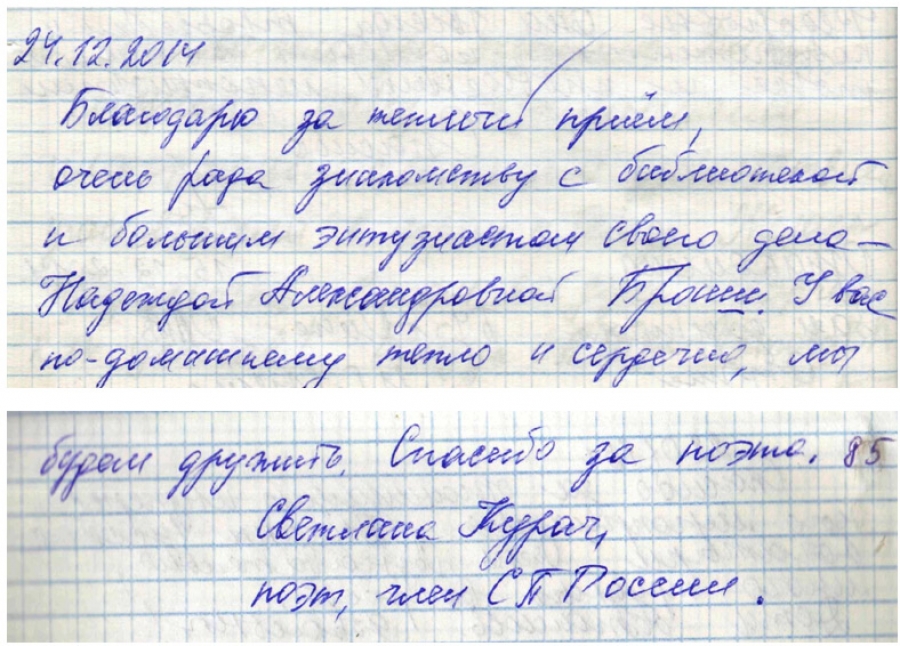 24.12.2014
Благодарю за теплый приём,
очень рада знакомству с библиотекой
и большим энтузиастом своего дела –
Надеждой Александровной У вас
по-домашнему тепло и сердечно, мы
будем дружить. Спасибо за поэта. 85
Светлана Курач,
поэт, член СП России.